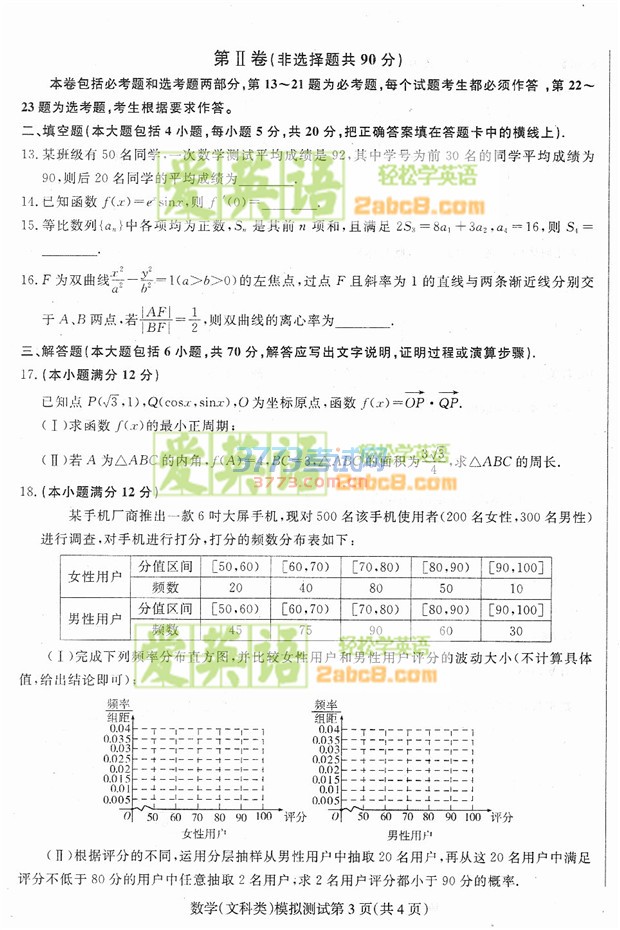 第Ⅱ卷(非选择题共90分)
本卷包括必考题和选考题两部分,第13～21题为必考题,每个试题考生都必须作答,第22～
23题为选考题,考生根据要求作答。
二、填空题(本大题包括4小题,每小题5分,共20分,把正确答案填在答题卡中的横线上).
13.某班级有50名同学,一次数学测试平均成绩是92,其中学号为前30名的同学平均成绩为
90,则后20名同学的平均成绩为________.
14.已知函数 f(x)=eˣsinx,则 f′(0)=________.
15.等比数列{aₙ}中各项均为正数,Sₙ是其前n项和,且满足2S₃=8a₁+3a₂,a₄=16,则S₄=
________.
16.F为双曲线x²/a²-y²/b²=1(a>b>0)的左焦点,过点F且斜率为1的直线与两条渐近线分别交
于A、B两点,若|AF|/|BF|=1/2,则双曲线的离心率为________.
三、解答题(本大题包括6小题,共70分,解答应写出文字说明,证明过程或演算步骤).
17.(本小题满分12分)
已知点P(√3,1),Q(cosx,sinx),O为坐标原点,函数 f(x)=OP·QP.
(Ⅰ)求函数f(x)的最小正周期;
(Ⅱ)若A为△ABC的内角,f(A)=4,BC=3,△ABC的面积为3√3/4,求△ABC的周长.
18.(本小题满分12分)
某手机厂商推出一款6吋大屏手机,现对500名该手机使用者(200名女性,300名男性)
进行调查,对手机进行打分,打分的频数分布表如下:
女性用户 分值区间 [50,60) [60,70) [70,80) [80,90) [90,100]
频数 20 40 80 50 10
男性用户 分值区间 [50,60) [60,70) [70,80) [80,90) [90,100]
频数 45 75 90 60 30
(Ⅰ)完成下列频率分布直方图,并比较女性用户和男性用户评分的波动大小(不计算具体
值,给出结论即可);
频率/组距
0.04
0.035
0.03
0.025
0.02
0.015
0.01
0.005
O 50 60 70 80 90 100 评分
女性用户
频率/组距
0.04
0.035
0.03
0.025
0.02
0.015
0.01
0.005
O 50 60 70 80 90 100 评分
男性用户
(Ⅱ)根据评分的不同,运用分层抽样从男性用户中抽取20名用户,再从这20名用户中满足
评分不低于80分的用户中任意抽取2名用户,求2名用户评分都小于90分的概率.
数学(文科类)模拟测试第3页(共4页)
爱英语
轻松学英语
2abc8.com
爱英语
3773考试网
3773.com.cn
轻松学英语
2abc8.com
爱英语
轻松学英语
2abc8.com